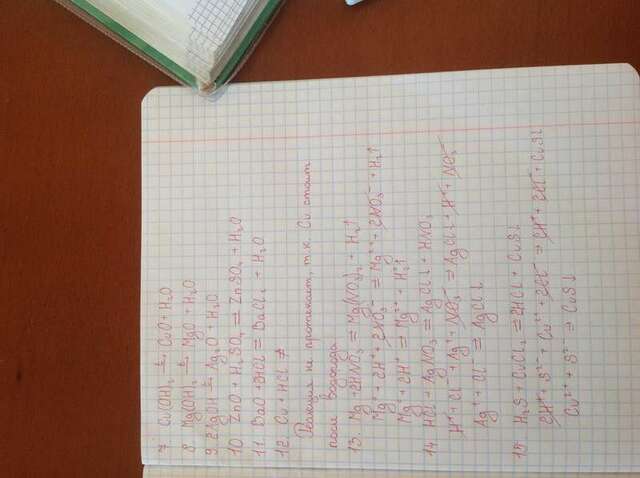 7 Cu(OH)₂ →ᵗ CuO + H₂O
8 Mg(OH)₂ →ᵗ MgO + H₂O
9. 2AgOH →ᵗ Ag₂O + H₂O
10 ZnO + H₂SO₄ = ZnSO₄ + H₂O
11. BaO + 2HCl = BaCl₂ + H₂O
12. Cu + HCl ≠
Реакция не протекает, т.к. Cu стоит
после водорода
13. Mg + 2HNO₃ = Mg(NO₃)₂ + H₂↑
Mg + 2H⁺ + 2NO₃⁻ = Mg²⁺ + 2NO₃⁻ + H₂↑
Mg + 2H⁺ = Mg²⁺ + H₂↑
14 HCl + AgNO₃ = AgCl↓ + HNO₃
H⁺ + Cl⁻ + Ag⁺ + NO₃⁻ = AgCl↓ + H⁺ + NO₃⁻
Ag⁺ + Cl⁻ = AgCl↓
15 H₂S + CuCl₂ = 2HCl + CuS↓
2H⁺ + S²⁻ + Cu²⁺ + 2Cl⁻ = 2H⁺ + 2Cl⁻ + CuS↓
Cu²⁺ + S²⁻ = CuS↓